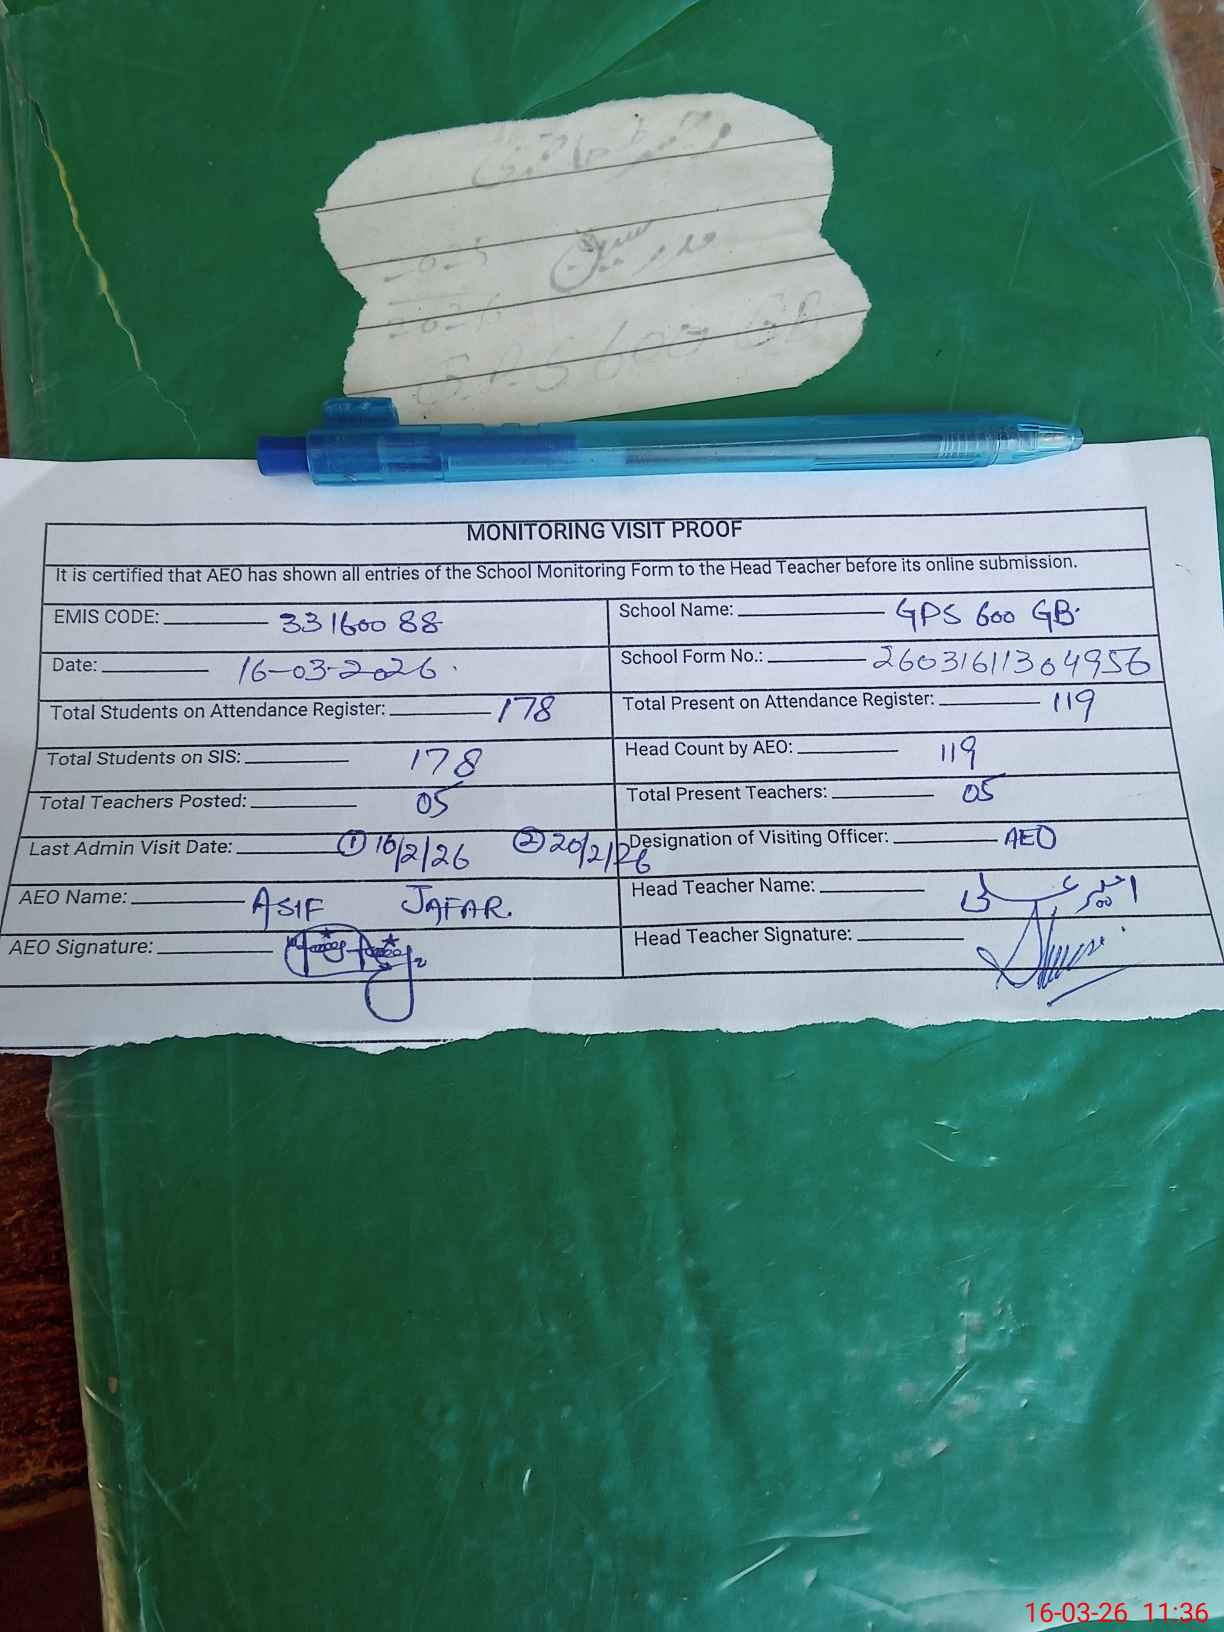 رجسٹر حاضری
مدرسین
2025
2026
GPS 600 GB
MONITORING VISIT PROOF
It is certified that AEO has shown all entries of the School Monitoring Form to the Head Teacher before its online submission.
EMIS CODE: 33160088 School Name: GPS 600 GB
Date: 16-03-2026 School Form No.: 26031611304956
Total Students on Attendance Register: 178 Total Present on Attendance Register: 119
Total Students on SIS: 178 Head Count by AEO: 119
Total Teachers Posted: 05 Total Present Teachers: 05
Last Admin Visit Date: ① 16/2/26 ② 20/2/26 Designation of Visiting Officer: AEO
AEO Name: ASIF JAFAR. Head Teacher Name: علی
AEO Signature: Head Teacher Signature:
16-03-26 11:36